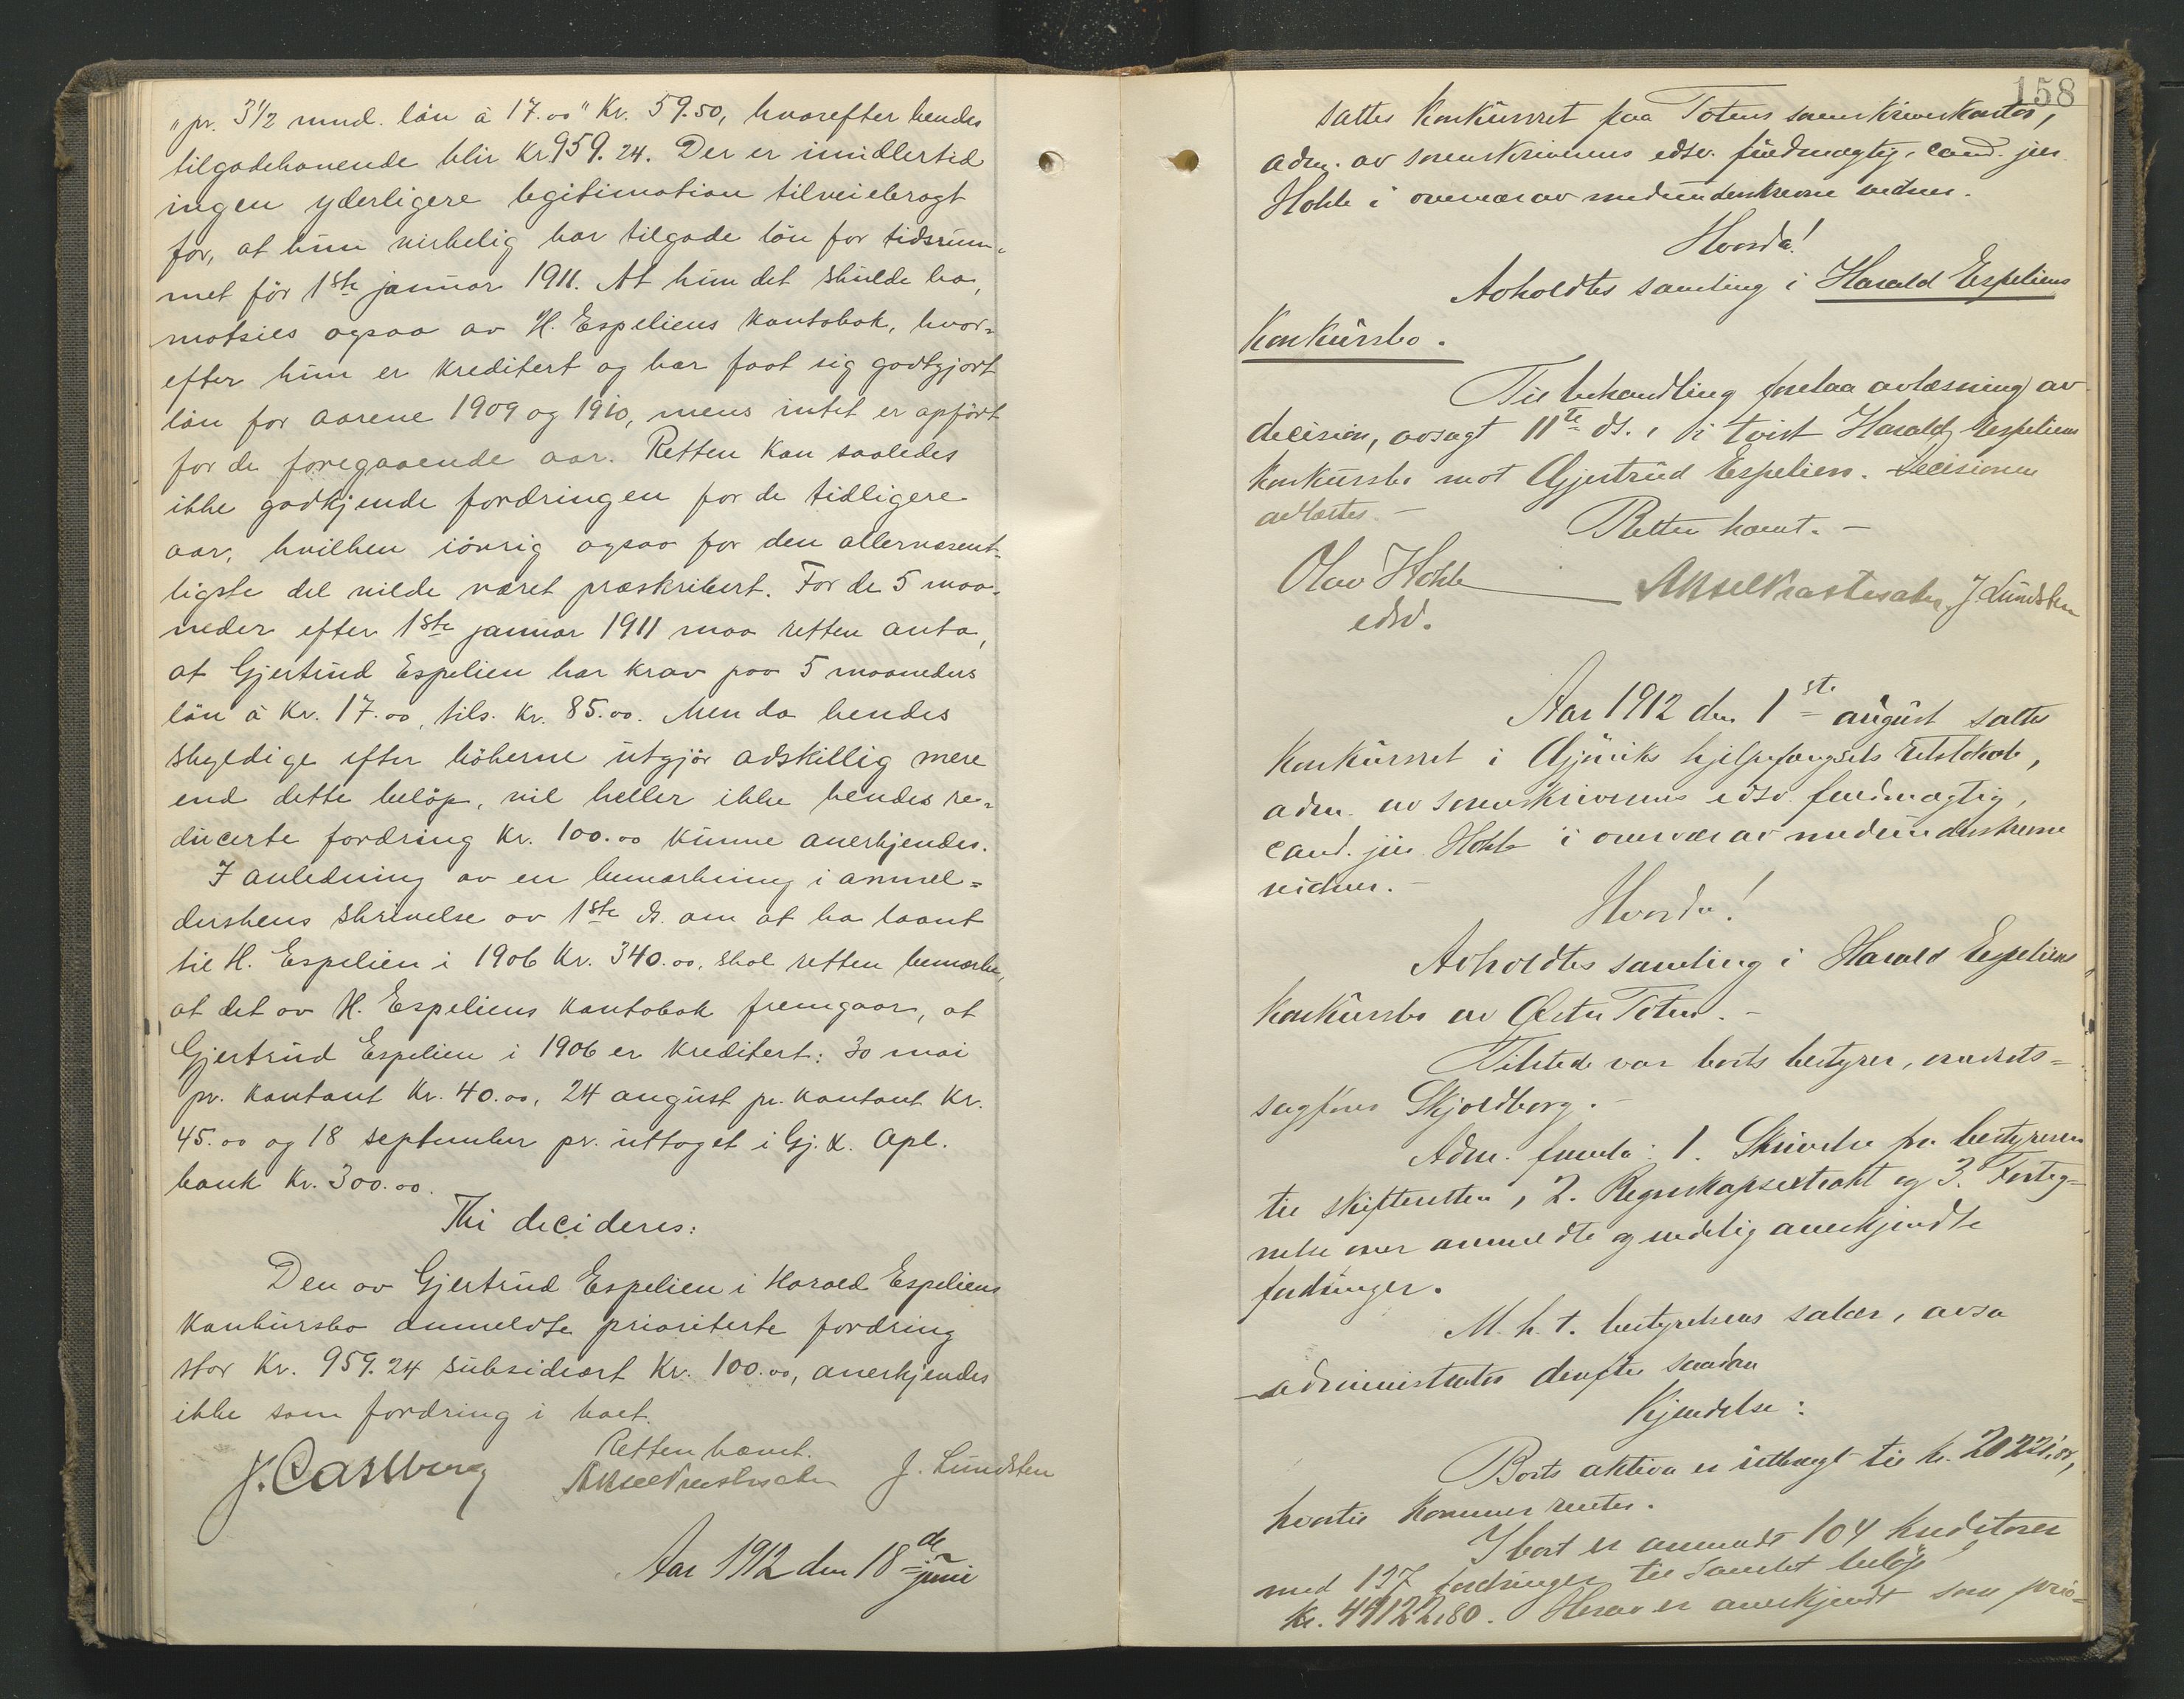 "pr. 3½ mnd. lön à 17.00" Kr. 59.50, hvorefter hendes
tilgodehavende blir Kr 959.24. Der er imidlertid
ingen yderligere legitimation tilveiebragt
for, at hun virkelig har tilgode lön for tidsrum-
met för 1ste januar 1911. At hun det skulde ha,
motsies ogsaa av H. Espeliens kontobok, hvor=
efter hun er kreditert og har faat sig godtgjort
lön for aarene 1909 og 1910, mens intet er opfört
for de foregaaende aar. Retten kan saaledes
ikke godkjende fordringen for de tidligere
aar, hvilken iövrig ogsaa for den allervæsent-
ligste del vilde været præskribert. For de 5 maa-
neder efter 1ste januar 1911 maa retten anta,
at Gjertrud Espelien har krav paa 5 maaneders
lön à Kr. 17.00, tils. Kr. 85.00. Men da hendes
skyldige efter bökerne utgjör adskillig mere
end dette belöp, vil heller ikke hendes re=
ducerte fordring Kr. 100.00 kunne anerkjendes.
I anledning av en bemærkning i anmel=
derskens skrivelse av 1ste ds. om at ha laant
til H. Espelien i 1906 Kr. 340.00, skal retten bemærke,
at det av H. Espeliens kontobok fremgaar, at
Gjertrud Espelien i 1906 er kreditert: 30 mai
pr. kontant Kr. 40.00, 24 august pr. kontant Kr.
45.00 og 18 september pr. uttaget i Gj. & Opl.
bank Kr. 300.00.
Thi decideres:
Den av Gjertrud Espelien i Harald Espeliens
konkursbo anmeldte prioriterte fordring
stor Kr. 959.24 subsidiært Kr. 100.00, anerkjendes
ikke som fordring i boet.
Retten hævet.
J. Castberg Aksel J. Lundsten
Aar 1912 den 18de juni
158
sattes konkursret paa Totens sorenskriverkontor,
adm. av sorenskriverens edsv. fuldmægtig, cand. jur.
Hohle i overvær av medunderskrevne vidner.
Hvorda!
Avholdtes samling i Harald Espeliens
konkursbo.
Til behandling forelaa avlæsning av
decision, avsagt 11te ds. i tvist Harald Espeliens
konkursbo mot Gjertrud Espelien. Decisionen
avlæstes. —
Retten hævet. —
Olav Hohle Aksel J. Lundsten
edsv.
Aar 1912 den 1ste august sattes
konkursret i Gjöviks hjelpefængsels retslokale,
adm. av sorenskriverens edsv. fuldmægtig,
cand. jur. Hohle i overvær av medunderskrevne
vidner. —
Hvorda!
Avholdtes samling i Harald Espeliens
konkursbo av Östre Toten. —
Tilstede var boets bestyrer, overrets=
sagförer Skjoldborg. —
Adm. fremla: 1. Skrivelse fra bestyreren
til skifteretten, 2. Regnskapsextrakt og 3. Forteg=
nelse over anmeldte og endelig anerkjendte
fordringer.
M. h. t. bestyrelsens salær, avsa
administrator derefter saadan
Kjendelse:
Boets aktiva er utbragt til kr. 20221,
hvortil kommer renter.
I boet er anmeldt 104 kreditorer
med 127 fordringer til samlet belöp
kr. 44122,80. Herav er anerkjendt som prio=